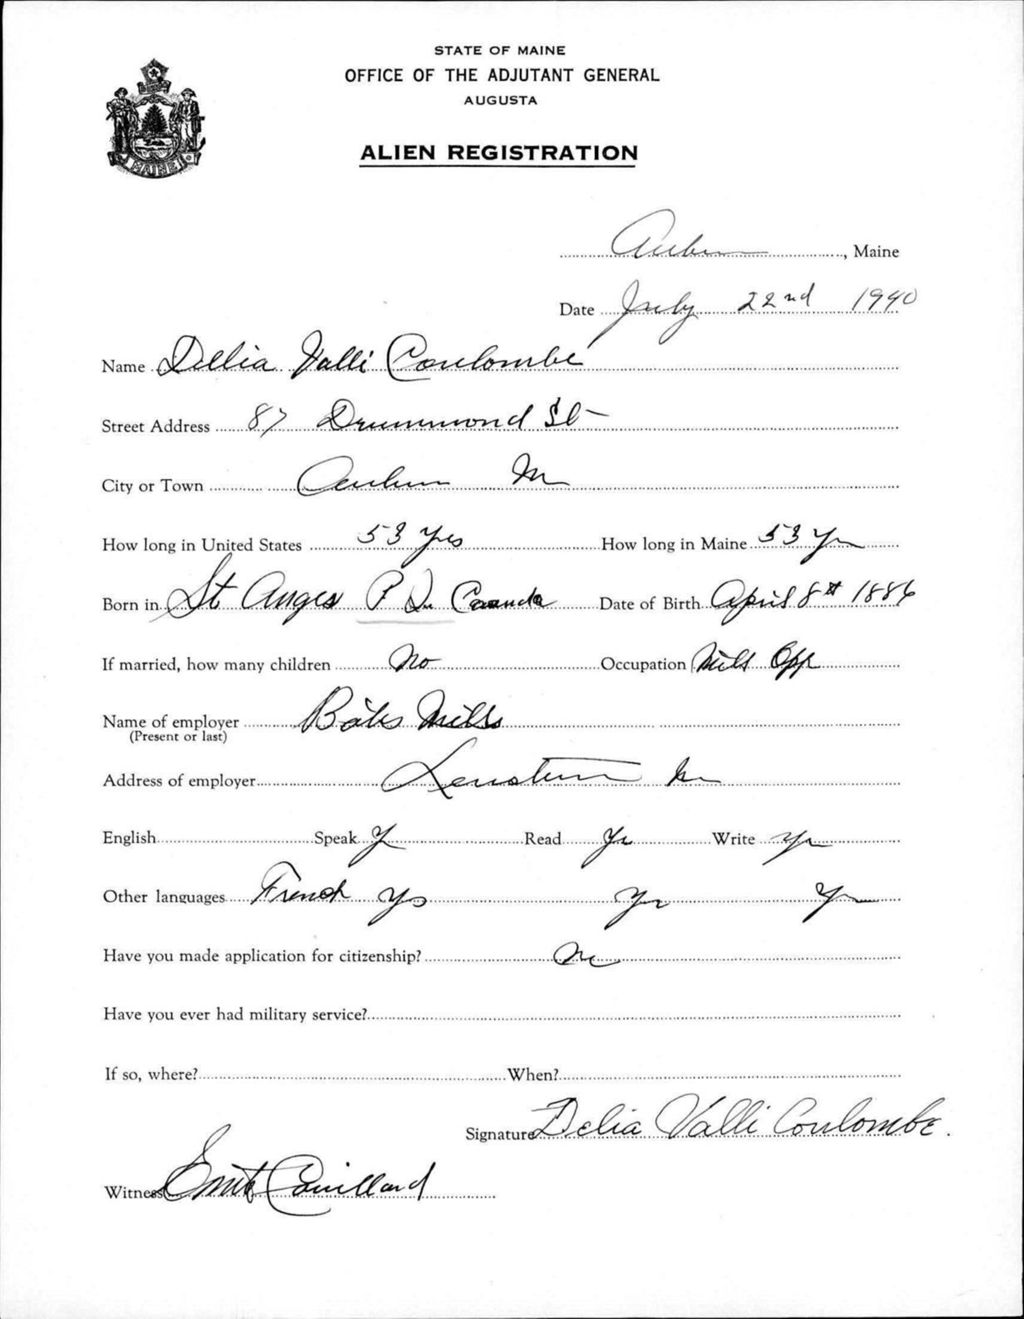 STATE OF MAINE
OFFICE OF THE ADJUTANT GENERAL
AUGUSTA
ALIEN REGISTRATION
MAINE
Auburn, Maine
Date July 22nd 1940
Name Dellia Valli Coulombe
Street Address 87 Drummond St
City or Town Auburn Me
How long in United States 53 Yrs How long in Maine 53 Yrs
Born in St Anges P Qu Canada Date of Birth April 8th 1886
If married, how many children No Occupation Mill Opp
Name of employer Bates Mills
(Present or last)
Address of employer Lewiston Me
English Speak Y Read Yes Write Yes
Other languages French Yes Yes Yes
Have you made application for citizenship? No
Have you ever had military service?
If so, where? When?
Signature Delia Valli Coulombe.
Witness Couillard